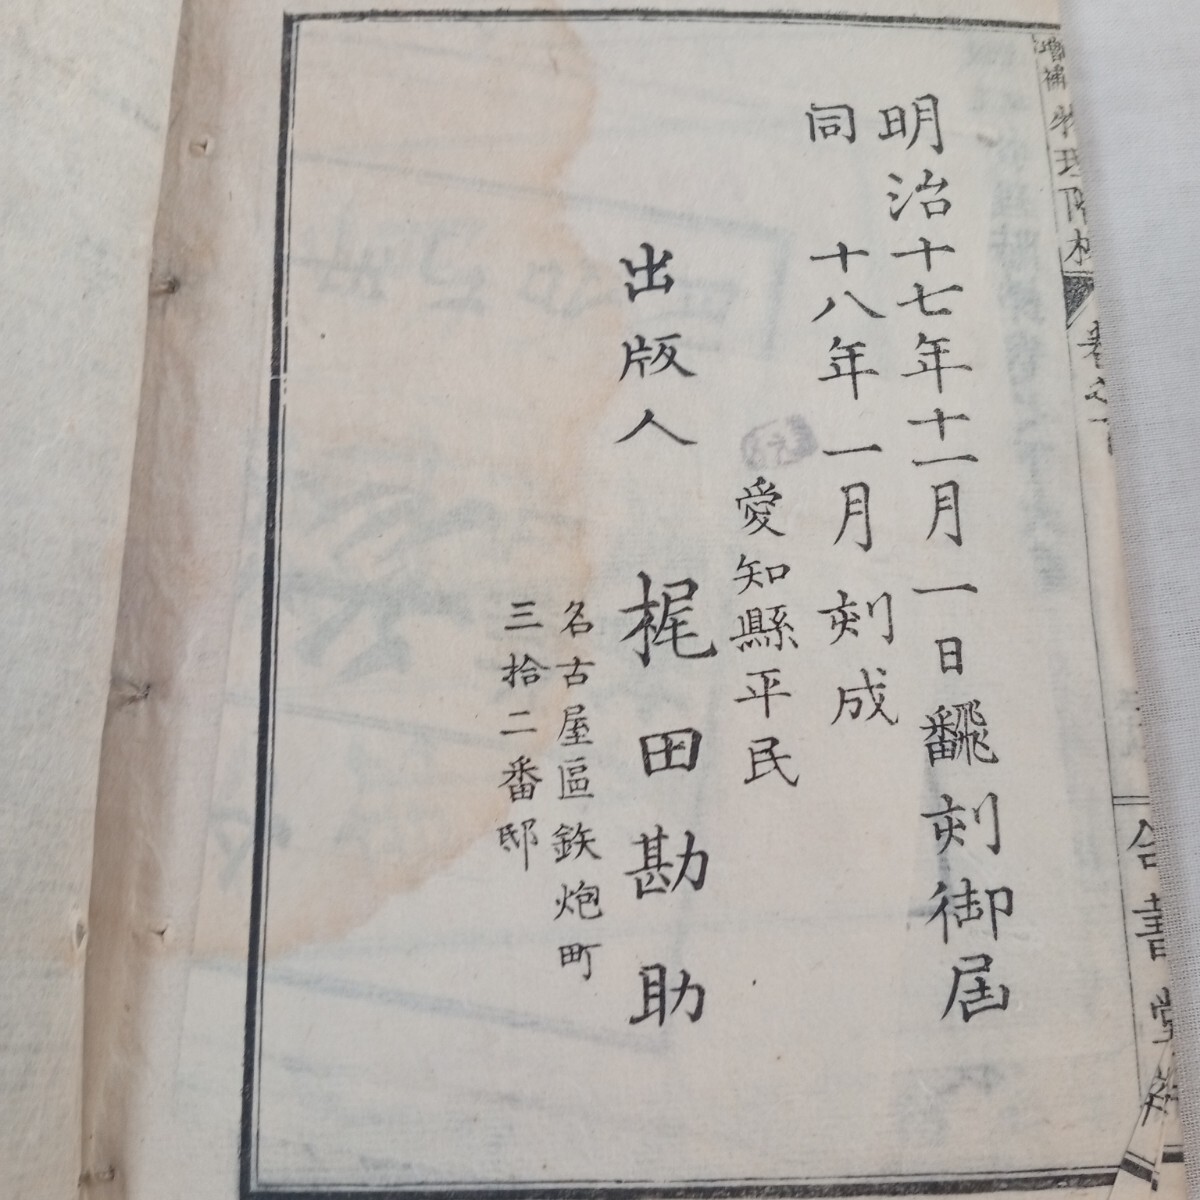 増補物理階梯 巻之下
合書堂
明治十七年十一月一日飜刻御届
同十八年一月刻成
愛知縣平民
出版人 梶田勘助
名古屋區鉄炮町
三拾二番邸